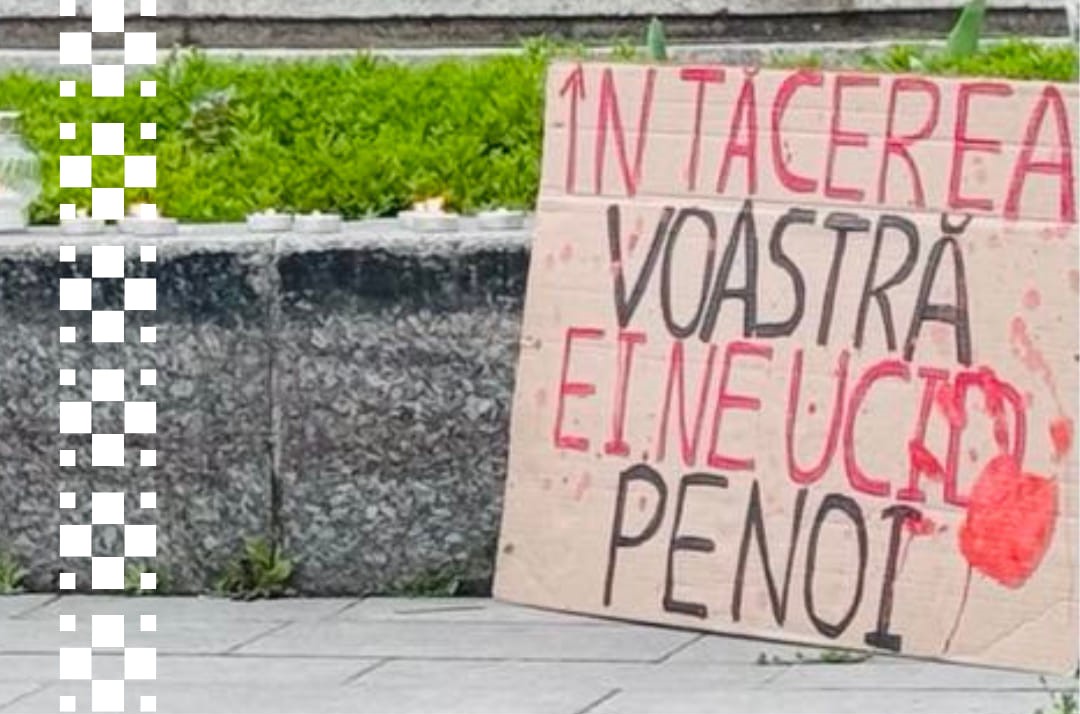 ÎN TĂCEREA
VOASTRĂ
EI NE UCID
PE NOI